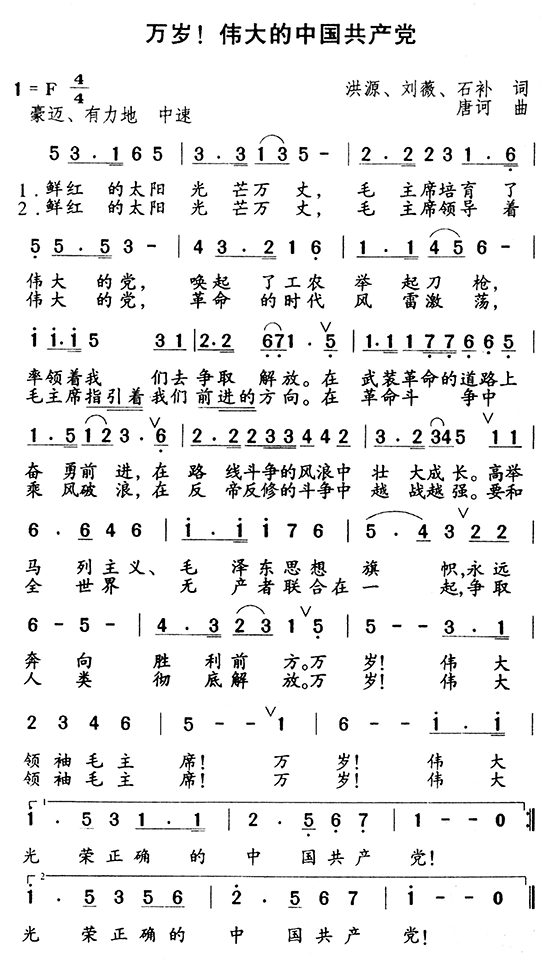 万岁！伟大的中国共产党
1=F 4/4
洪源、刘薇、石补 词
豪迈、有力地 中速
唐诃 曲
5 3 . 1 6 5 | 3 . 3 1 3 5 - | 2 . 2 2 3 1 . 6 |
1．鲜红 的太阳 光 芒万 丈， 毛 主席培育 了
2．鲜红 的太阳 光 芒万 丈， 毛 主席领导 着
5 5 . 5 3 - | 4 3 . 2 1 6 | 1 . 1 4 5 6 - |
伟大 的党， 唤起 了工农 举 起刀 枪，
伟大 的党， 革命 的时代 风 雷激 荡，
i i . i 5 3 1 | 2 . 2 6 7 1 . ∨ 5 | 1 . 1 1 7 7 6 6 6 5 |
率领着我 们去争取 解放。在 武装革命的道路上
毛主席指引着我们前进的方向。在 革命斗 争中
1 . 5 1 2 3 . ∨ 6 | 2 . 2 2 2 3 3 4 4 2 | 3 . 2 3 4 5 ∨ 1 1 |
奋 勇前 进，在 路 线斗争的风浪中 壮 大成长。高举
乘 风破 浪，在 反 帝反修的斗争中 越 战越强。要和
6 . 6 4 6 | i . i i 7 6 | 5 . 4 3 ∨ 2 2 |
马 列主义、 毛 泽东思想 旗 帜，永远
全 世界 无 产者联合在一 起，争取
6 - 5 - | 4 . 3 2 3 1 ∨ 5 | 5 - - 3 . 1 |
奔 向 胜 利前 方。万 岁！ 伟 大
人 类 彻 底解 放。万 岁！ 伟 大
2 3 4 6 | 5 - - ∨ 1 | 6 - - i . i |
领袖毛主 席！ 万 岁！ 伟 大
领袖毛主 席！ 万 岁！ 伟 大
1
i . 5 3 1 . 1 | 2 . 5 6 7 | 1 - - 0 :‖
光 荣正确 的 中 国共产 党！
2
i . 5 3 5 5 6 | 2 . 5 6 7 | i - - 0 ‖
光 荣正确的 中 国共产 党！